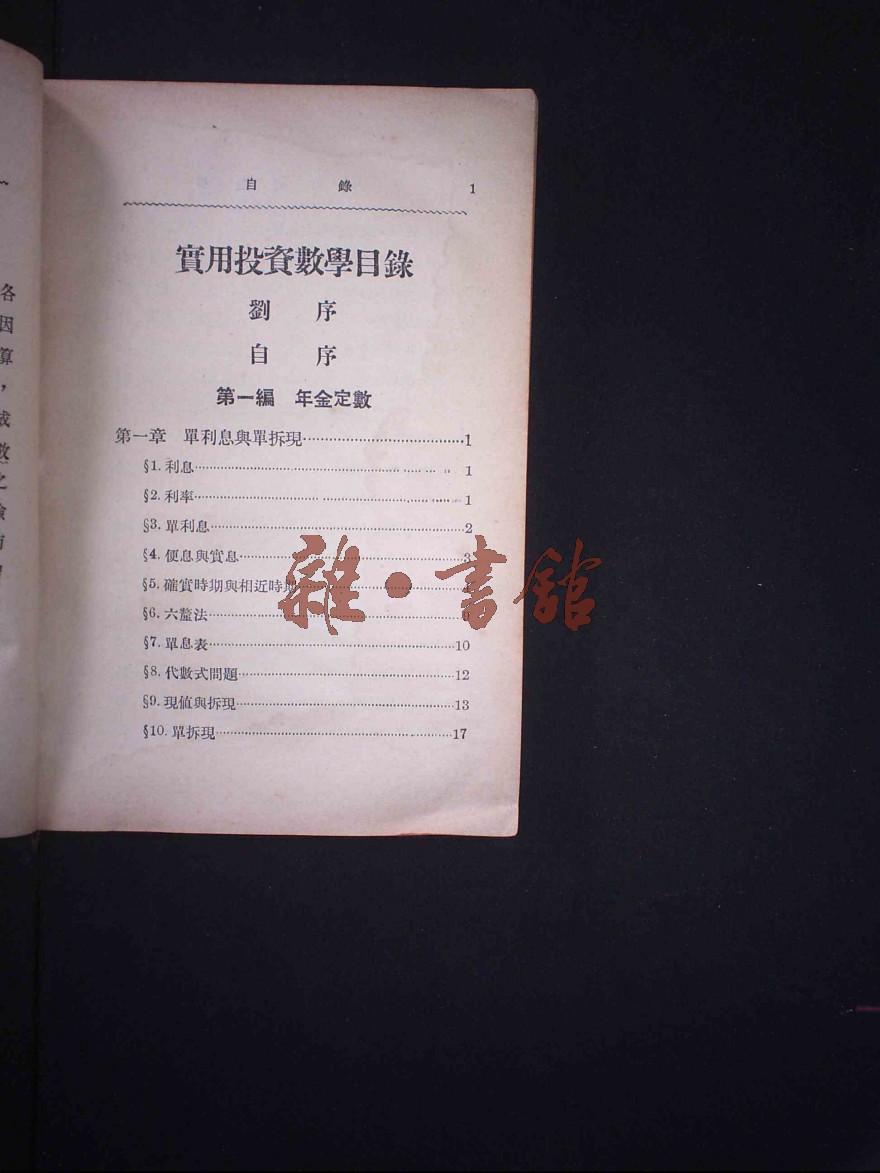 目 錄 1
實用投資數學目錄
劉 序
自 序
第一編 年金定數
第一章 單利息與單拆現……1
§1. 利息……1
§2. 利率……1
§3. 單利息……2
§4. 便息與實息……3
§5. 確實時期與相近時期……
§6. 六釐法……
§7. 單息表……10
§8. 代數式問題……12
§9. 現值與拆現……13
§10. 單拆現……17
雜·書館
各
因
算
，
成
數
之